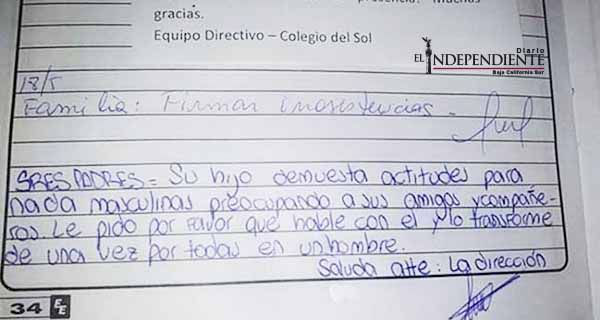 presencia. Muchas
gracias.
Equipo Directivo – Colegio del Sol
Diario
EL INDEPENDIENTE
Baja California Sur
18/5
Familia: Firmar inasistencias.
SRES PADRES = Su hijo demuesta actitudes para
nada masculinas preocupando a sus amigos y compañe-
ros. Le pido por favor que hable con el y lo transforme
de una vez por todas en un hombre.
Saluda atte: La dirección
34 EE